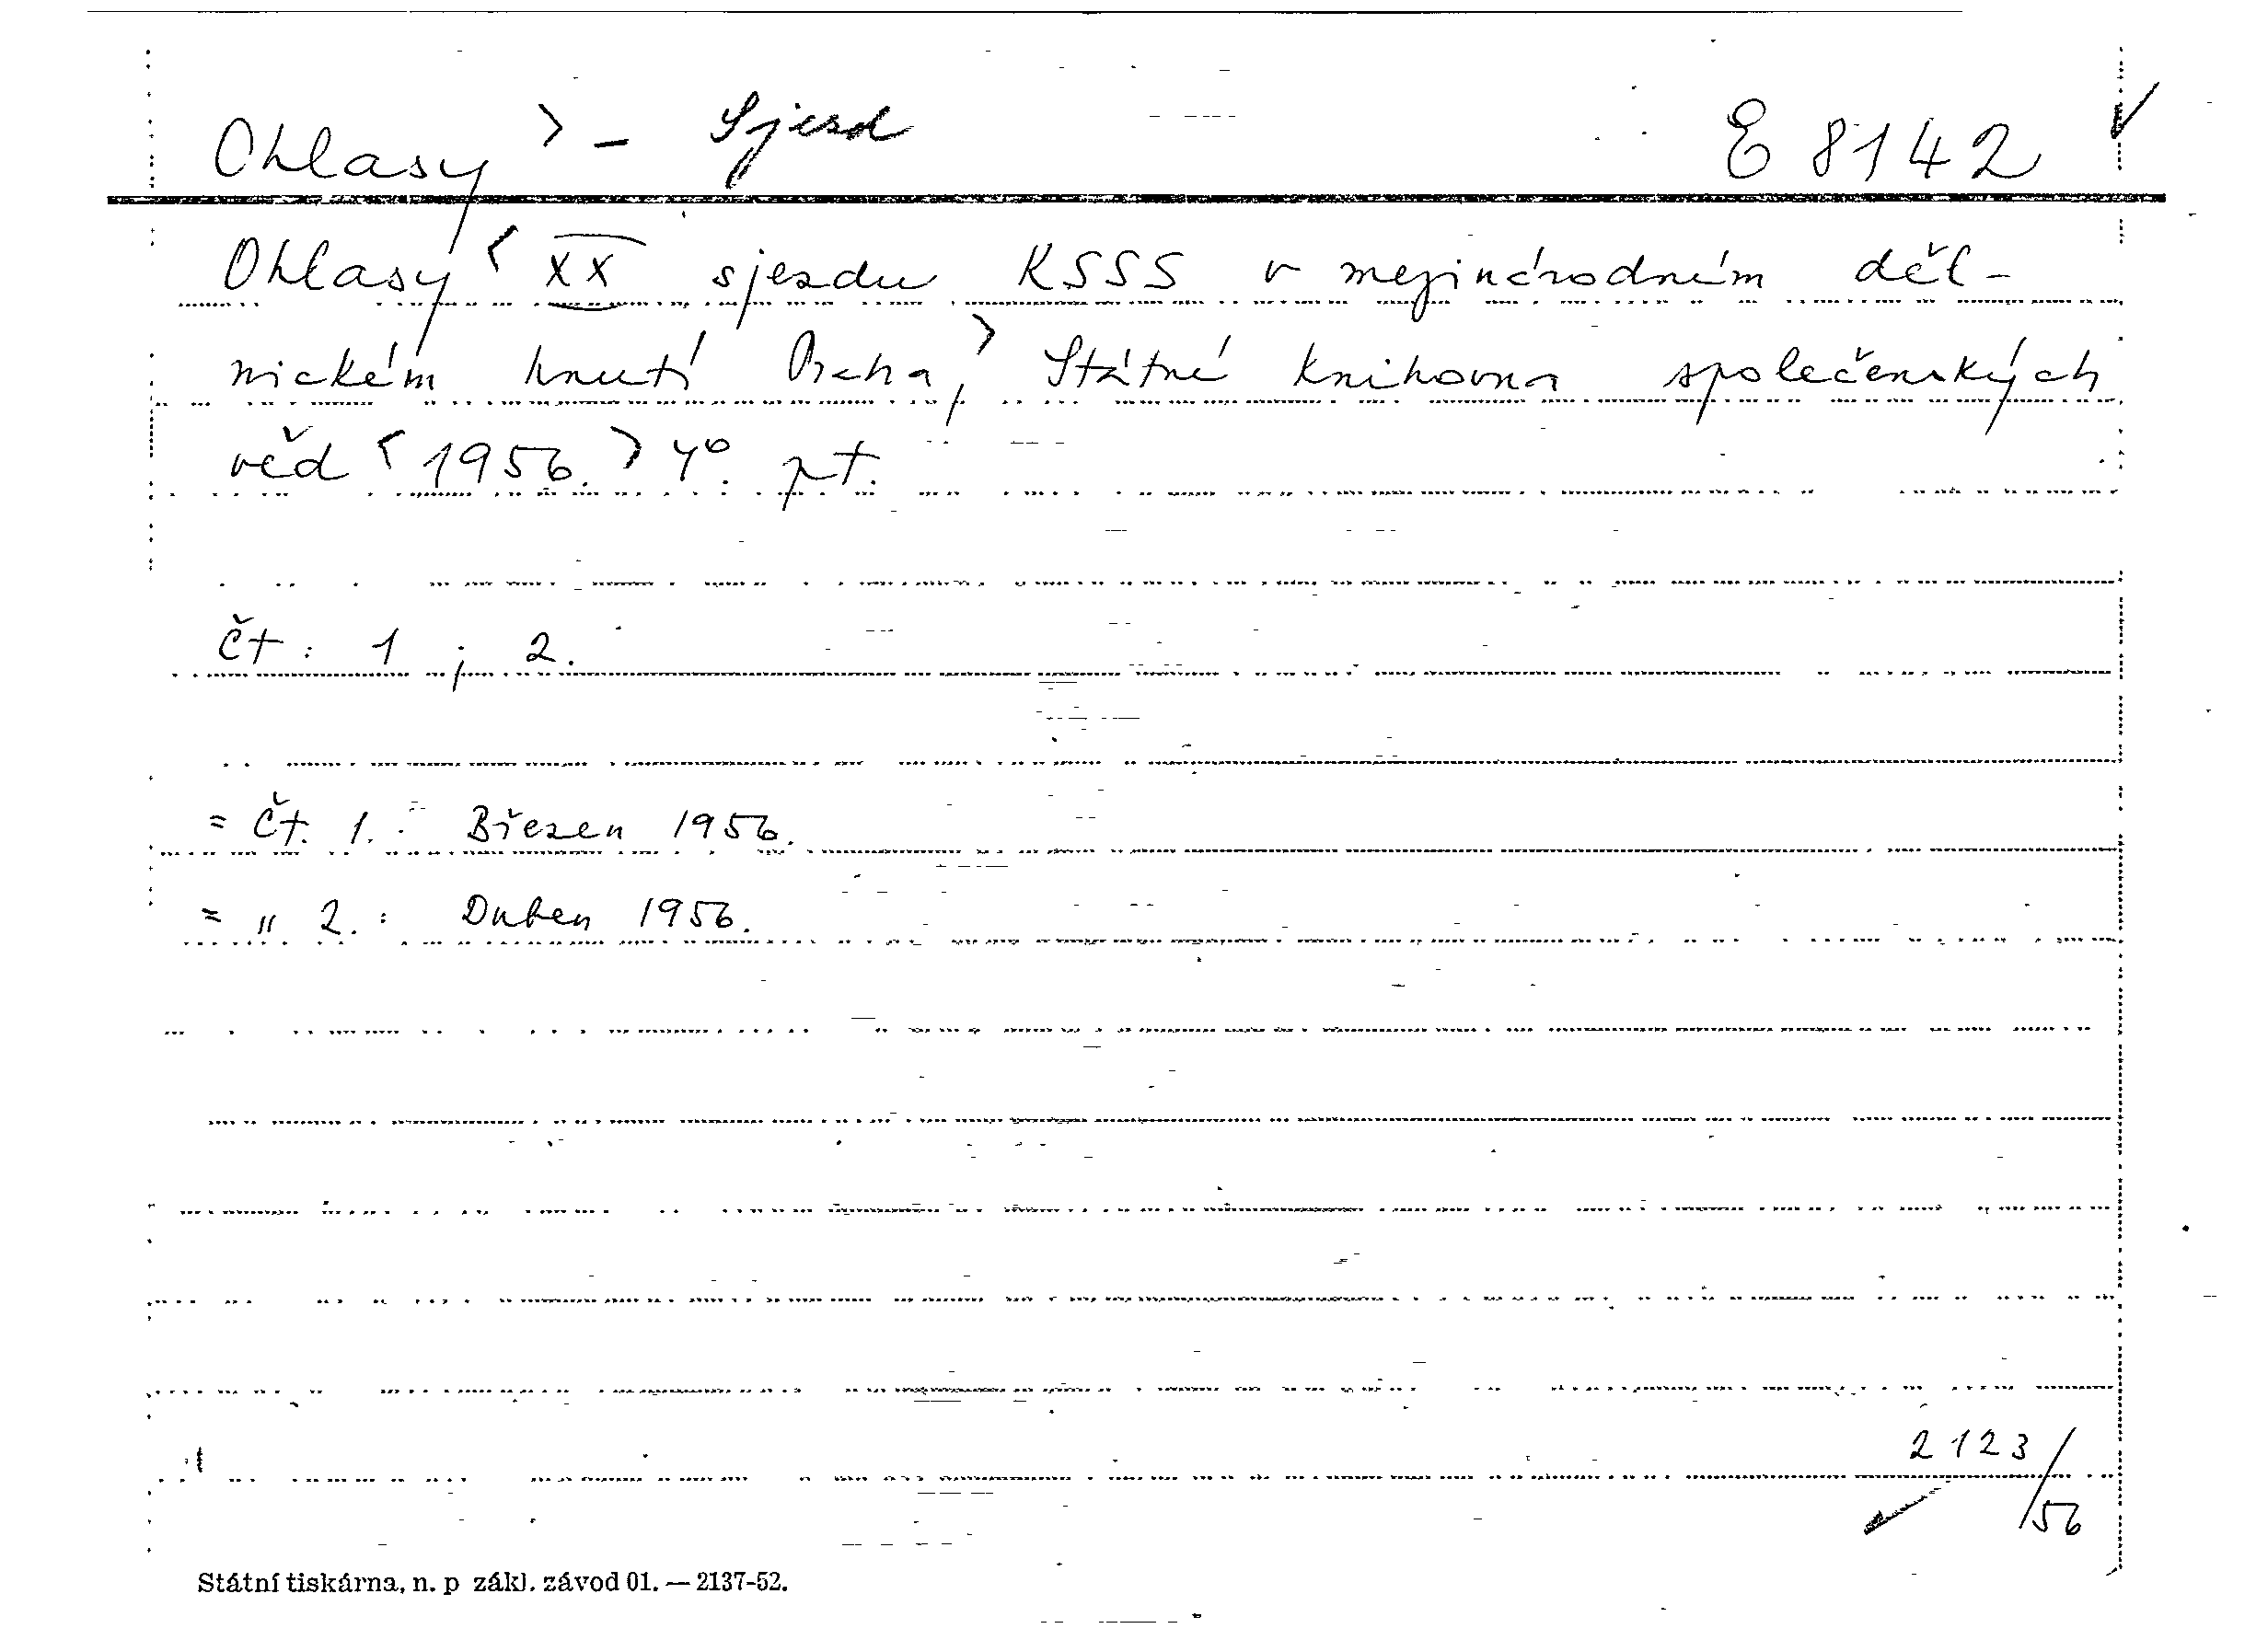 Ohlasy > - Sjezd E 8142 ✓
Ohlasy < XX sjezdu KSSS v mezinárodním děl-
nickém hnutí Praha, > Státní knihovna společenských
věd < 1956. > 4°. pt.
Čt : 1 ; 2.
= Čt. 1. : Březen 1956.
= " 2. : Duben 1956.
2123/56
Státní tiskárna, n. p zákl. závod 01. — 2137-52.